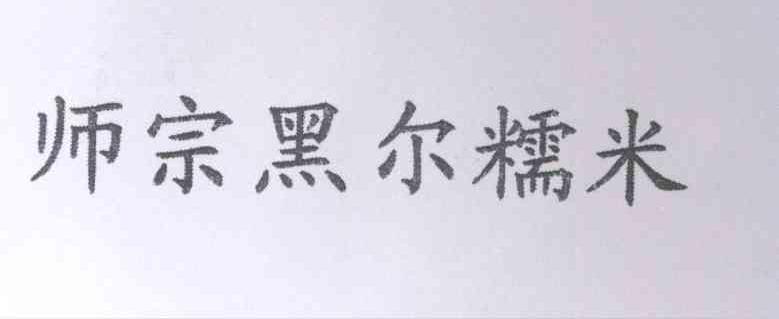 师宗黑尔糯米